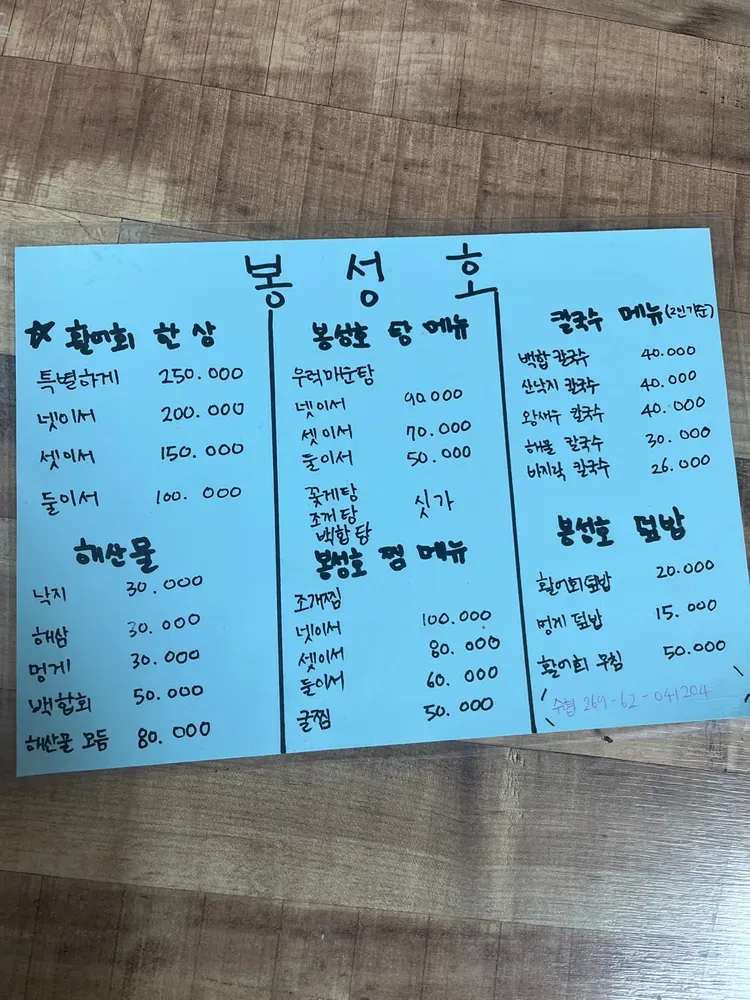 봉성호
☆ 활어회 한상
특별하게 250.000
넷이서 200.000
셋이서 150.000
둘이서 100.000
해산물
낙지 30.000
해삼 30.000
멍게 30.000
백합회 50.000
해산물 모듬 80.000
봉성호 탕 메뉴
우럭매운탕
넷이서 90.000
셋이서 70.000
둘이서 50.000
꽃게탕
조개탕 싯가
백합탕
봉성호 찜 메뉴
조개찜
넷이서 100.000
셋이서 80.000
둘이서 60.000
굴찜 50.000
칼국수 메뉴(2인기준)
백합 칼국수 40.000
산낙지 칼국수 40.000
왕새우 칼국수 40.000
해물 칼국수 30.000
바지락 칼국수 26.000
봉성호 덮밥
활어회덮밥 20.000
멍게 덮밥 15.000
활어회 무침 50.000
수협 269-62-041204